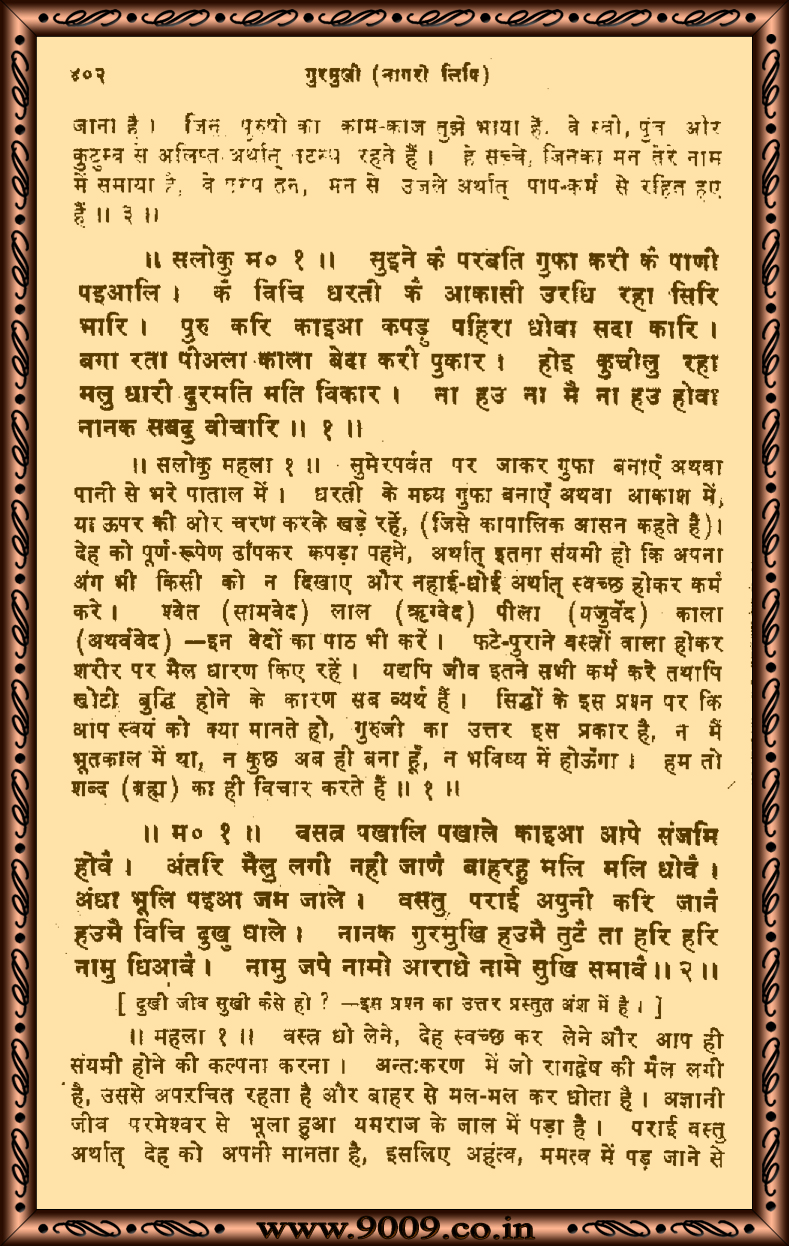 ४०२ गुरमुखी (नागरी लिपि)
जाना है। जिन पुरुषों का काम-काज तुझे भाया है, वे स्त्री, पुत्र और
कुटुम्ब से अलिप्त अर्थात् तटस्थ रहते हैं। हे सच्चे, जिनका मन तेरे नाम
में समाया है, वे तन, मन से उजले अर्थात् पाप-कर्म से रहित हुए
हैं ॥ ३ ॥
॥ सलोकु म० १ ॥ सुइने कै परबति गुफा करी कै पाणी
पइआलि। कै विचि धरती कै आकासी उरधि रहा सिरि
भारि। पुरु करि काइआ कपड़ु पहिरा धोवा सदा कारि।
बगा रता पीअला काला बेदा करी पुकार। होइ कुचीलु रहा
मलु धारी दुरमति मति विकार। ना हउ ना मै ना हउ होवा
नानक सबदु वीचारि ॥ १ ॥
॥ सलोकु महला १ ॥ सुमेरपर्वत पर जाकर गुफा बनाएँ अथवा
पानी से भरे पाताल में। धरती के मध्य गुफा बनाएँ अथवा आकाश में,
या ऊपर की ओर चरण करके खड़े रहें, (जिसे कापालिक आसन कहते है)।
देह को पूर्ण-रूपेण ढाँपकर कपड़ा पहने, अर्थात् इतना संयमी हो कि अपना
अंग भी किसी को न दिखाए और नहाई-धोई अर्थात् स्वच्छ होकर कर्म
करे। श्वेत (सामवेद) लाल (ऋग्वेद) पीला (यजुर्वेद) काला
(अथर्ववेद) —इन वेदों का पाठ भी करें। फटे-पुराने वस्त्रों वाला होकर
शरीर पर मैल धारण किए रहें। यद्यपि जीव इतने सभी कर्म करे तथापि
खोटी बुद्धि होने के कारण सब व्यर्थ हैं। सिद्धों के इस प्रश्न पर कि
आप स्वयं को क्या मानते हो, गुरुजी का उत्तर इस प्रकार है, न मैं
भूतकाल में था, न कुछ अब ही बना हूँ, न भविष्य में होऊँगा। हम तो
शब्द (ब्रह्म) का ही विचार करते हैं ॥ १ ॥
॥ म० १ ॥ वसत्र पखालि पखाले काइआ आपे संजमि
होवै। अंतरि मैलु लगी नही जाणै बाहरहु मलि मलि धोवै।
अंधा भूलि पइआ जम जाले। वसतु पराई अपुनी करि जानै
हउमै विचि दुखु घाले। नानक गुरमुखि हउमै तुटै ता हरि हरि
नामु धिआवै। नामु जपे नामो आराधे नामे सुखि समावै ॥ २ ॥
[ दुखी जीव सुखी कैसे हो ? —इस प्रश्न का उत्तर प्रस्तुत अंश में है। ]
॥ महला १ ॥ वस्त्र धो लेने, देह स्वच्छ कर लेने और आप ही
संयमी होने की कल्पना करना। अन्तःकरण में जो रागद्वेष की मैल लगी
है, उससे अपरचित रहता है और बाहर से मल-मल कर धोता है। अज्ञानी
जीव परमेश्वर से भूला हुआ यमराज के जाल में पड़ा है। पराई वस्तु
अर्थात् देह को अपनी मानता है, इसलिए अहंत्व, ममत्व में पड़ जाने से
www.9009.co.in